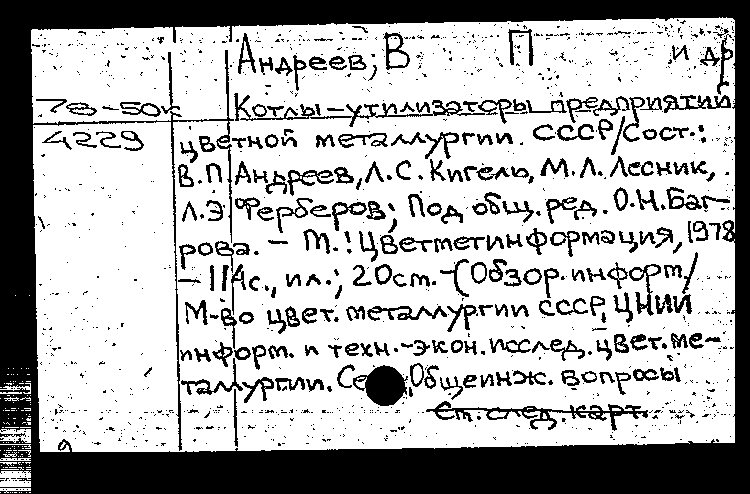 Андреев, В П и др
78-50к Котлы-утилизаторы предприятий
4229 цветной металлургии СССР/Сост.:
В.П.Андреев, Л.С.Кигель, М.Л.Лесник,
Л.Э Ферберов; Под общ. ред. О.Н.Баг-
рова. - М.: Цветметинформация, 1978
- 114с., ил.; 20см. - (Обзор. информ/
М-во цвет. металлургии СССР, ЦНИИ
информ. и техн.-экон. исслед. цвет. ме-
таллургии. Се Общеинж. вопросы
См. след. карт.